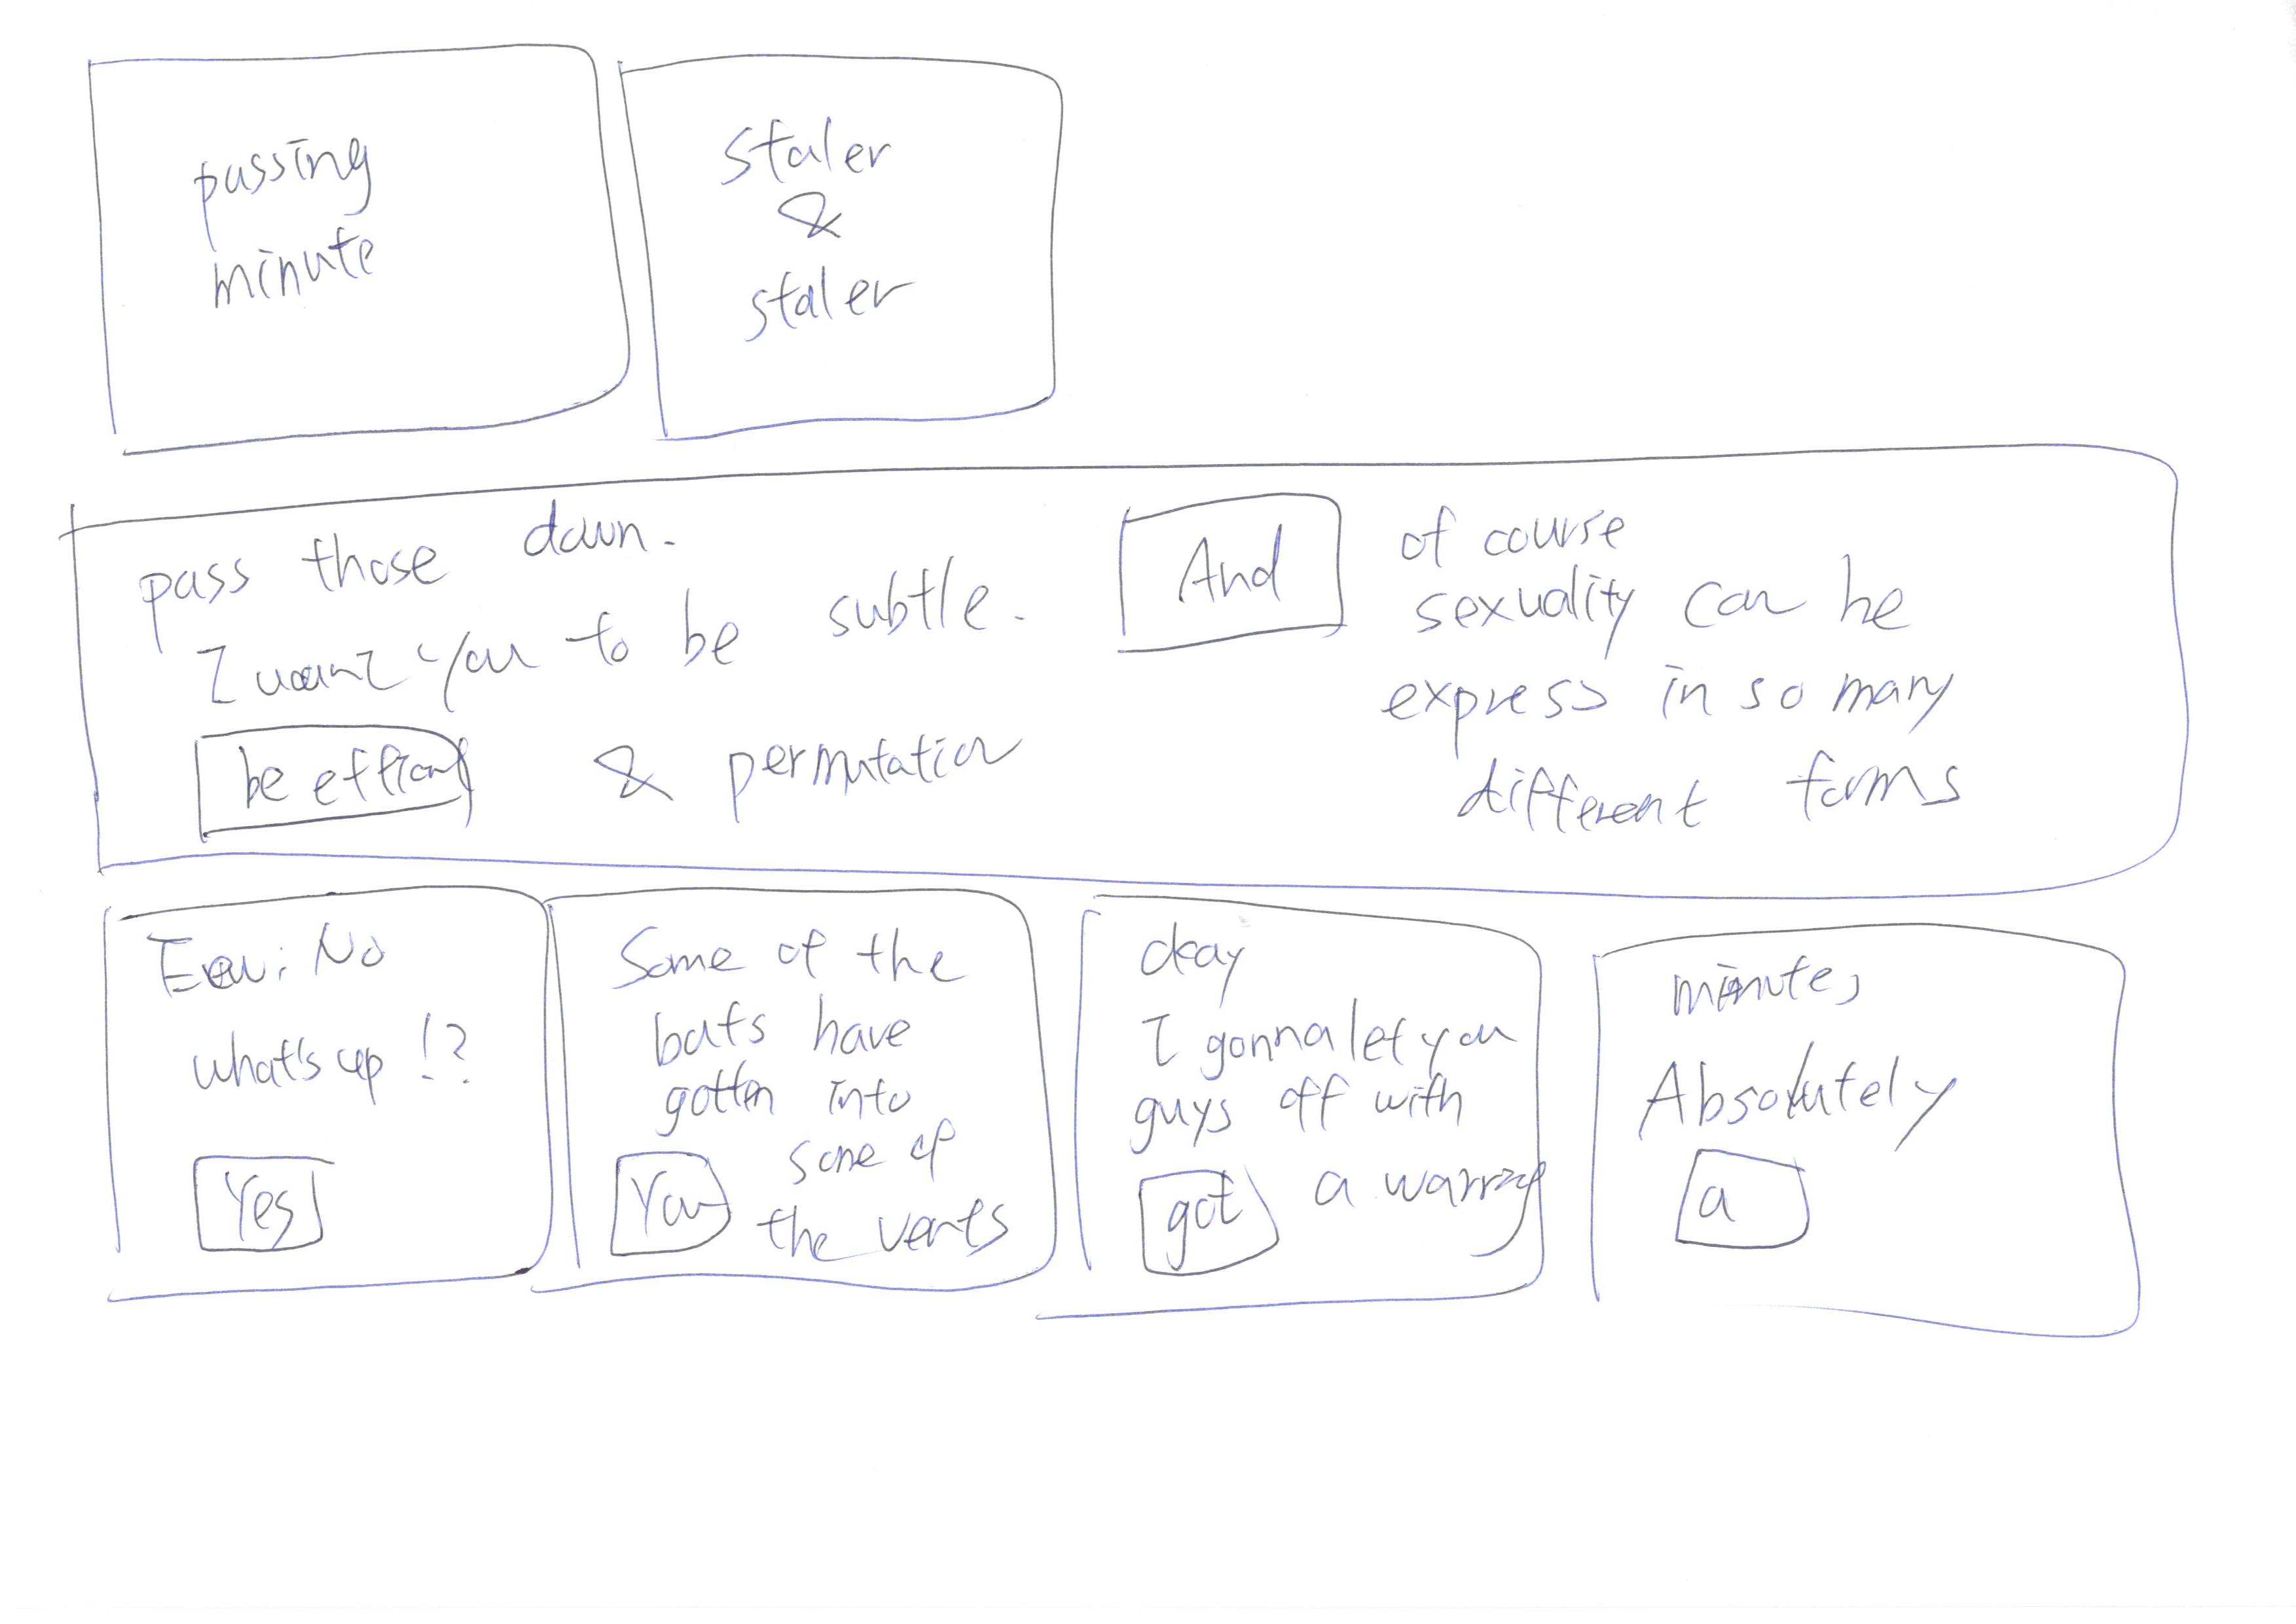 passing
minute
staler
&
staler
pass those down.
I want you to be subtle.
be
& permutation
And
of course
sexuality can be
express in so many
different forms
No
what's up !?
Yes
Some of the
bats have
gotten into
some of
You
the vents
okay
I gonna let you
guys off with
got
a
minute,
Absolutely
a